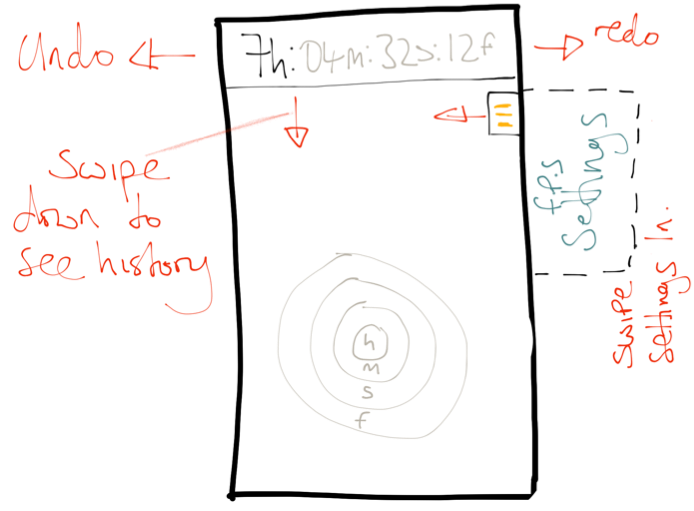 undo
7h:04m:32s:12f
redo
swipe
down to
see history
f.p.s
settings
swipe
settings in.
h
m
s
f